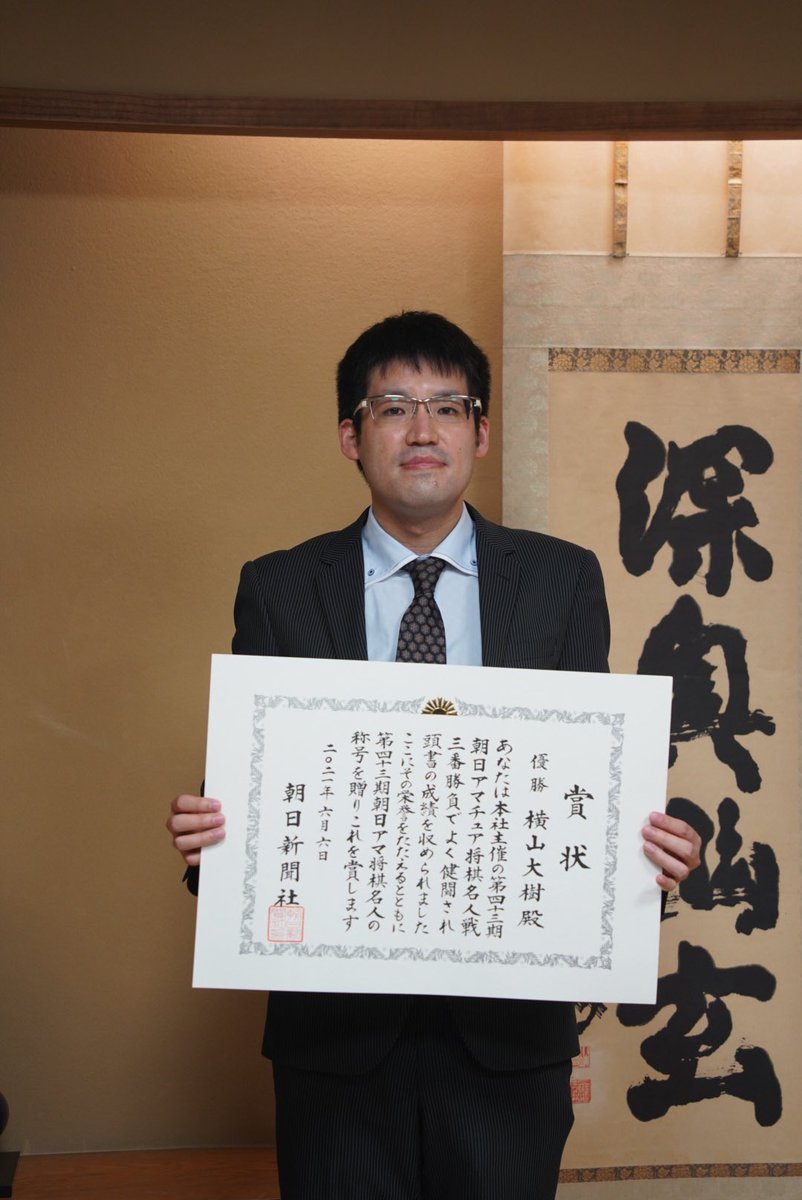 賞状
優勝 横山大樹殿
あなたは本社主催の第四十三期
朝日アマチュア将棋名人戦
三番勝負でよく健闘され
頭書の成績を収められました
ここにその栄誉をたたえるとともに
第四十三期朝日アマ将棋名人の
称号を贈りこれを賞します
二〇二一年六月六日
朝日新聞社
深奥幽玄